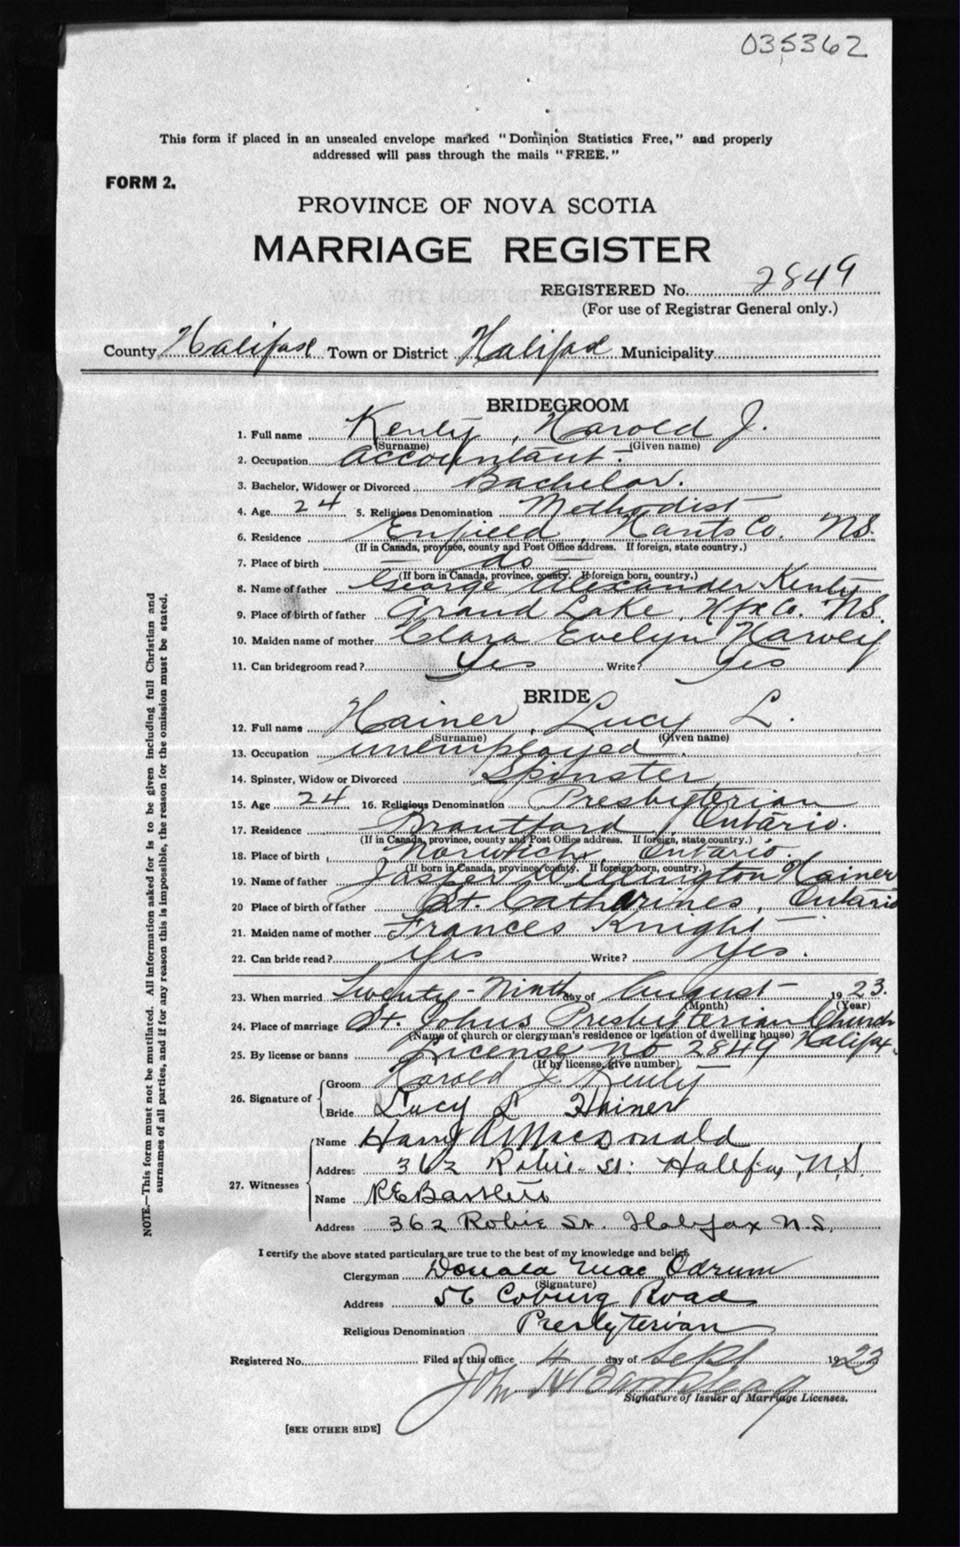 035362
This form if placed in an unsealed envelope marked "Dominion Statistics Free," and properly
addressed will pass through the mails "FREE."
FORM 2.
PROVINCE OF NOVA SCOTIA
MARRIAGE REGISTER
REGISTERED No. 2849
(For use of Registrar General only.)
County Halifax Town or District Halifax Municipality
BRIDEGROOM
1. Full name Kenty, Harold J.
(Surname) (Given name)
2. Occupation Accountant
3. Bachelor, Widower or Divorced Bachelor.
4. Age 24 5. Religious Denomination Methodist
6. Residence Enfield, Hants Co. N.S.
(If in Canada, province, county and Post Office address. If foreign, state country.)
7. Place of birth do
(If born in Canada, province, county. If foreign born, country.)
8. Name of father George Alexander Kenty
9. Place of birth of father Grand Lake, Hfx Co. N.S.
10. Maiden name of mother Clara Evelyn Harvey
11. Can bridegroom read? Yes Write? Yes
BRIDE
12. Full name Hainer, Lucy L.
(Surname) (Given name)
13. Occupation unemployed.
14. Spinster, Widow or Divorced Spinster
15. Age 24 16. Religious Denomination Presbyterian
17. Residence Brantford, Ontario.
(If in Canada, province, county and Post Office address. If foreign, state country.)
18. Place of birth Norwich, Ontario.
(If born in Canada, province, county. If foreign born, country.)
19. Name of father Jasper Hainer
20 Place of birth of father St. Catharines, Ontario
21. Maiden name of mother Frances Knight
22. Can bride read? Yes Write? Yes.
23. When married Twenty-Ninth day of August 1923.
(Month) (Year)
24. Place of marriage St. Johns Presbyterian Church
(Name of church or clergyman's residence or location of dwelling house) Halifax
25. By license or banns License no 2849
(If by license, give number)
26. Signature of Groom Harold J Kenty
Bride Lucy L Hainer
27. Witnesses Name Harry R MacDonald
Address 362 Robie St. Halifax, N.S.
Name R E Bartlett
Address 362 Robie St. Halifax N.S.
I certify the above stated particulars are true to the best of my knowledge and belief.
Clergyman Donald Mac Odrum
(Signature)
Address 56 Coburg Road
Religious Denomination Presbyterian
Registered No. Filed at this office 4 day of Sept 1923
John
Signature of Issuer of Marriage Licenses.
[SEE OTHER SIDE]
NOTE.—This form must not be mutilated. All information asked for is to be given including full Christian and
surnames of all parties, and if for any reason this is impossible, the reason for the omission must be stated.